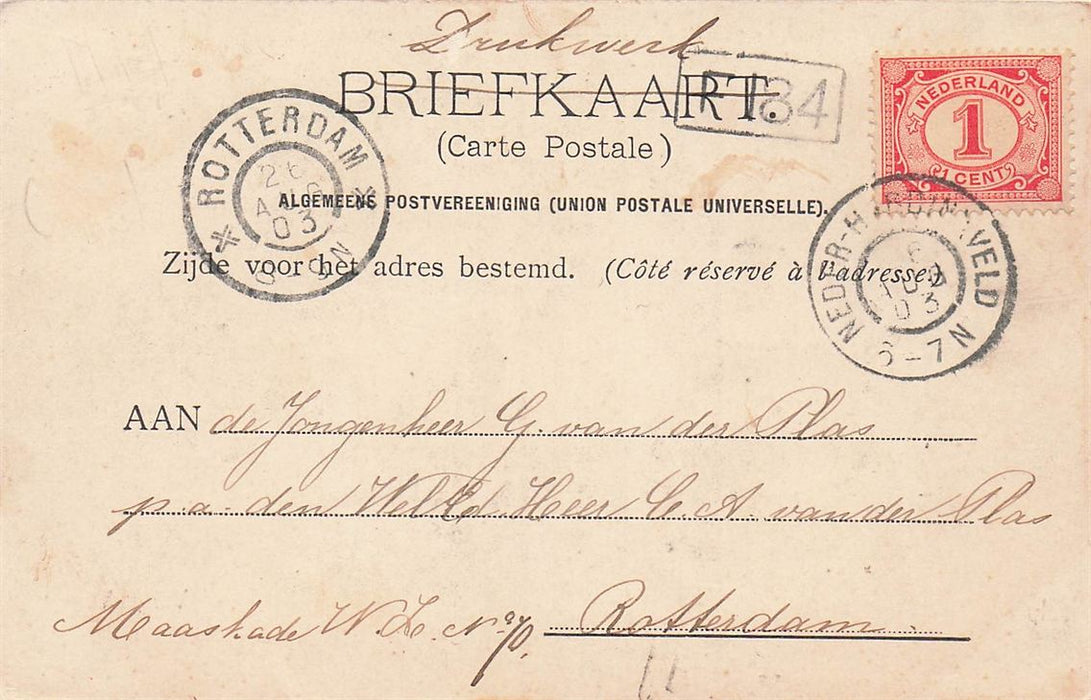 Drukwerk
BRIEFKAART.
184
(Carte Postale)
NEDERLAND
1
1 CENT
ROTTERDAM
26
AUG
03
8-9N
ALGEMEENE POSTVEREENIGING (UNION POSTALE UNIVERSELLE).
Zijde voor het adres bestemd. (Côté réservé à l'adresse.)
NEDER-HARDINXVELD
6
03
6-7N
AAN de Jongenheer G. van der Plas
p.a. den WelEd. Heer C. A. van der Plas
Maaskade W.Z. No. 70. Rotterdam.